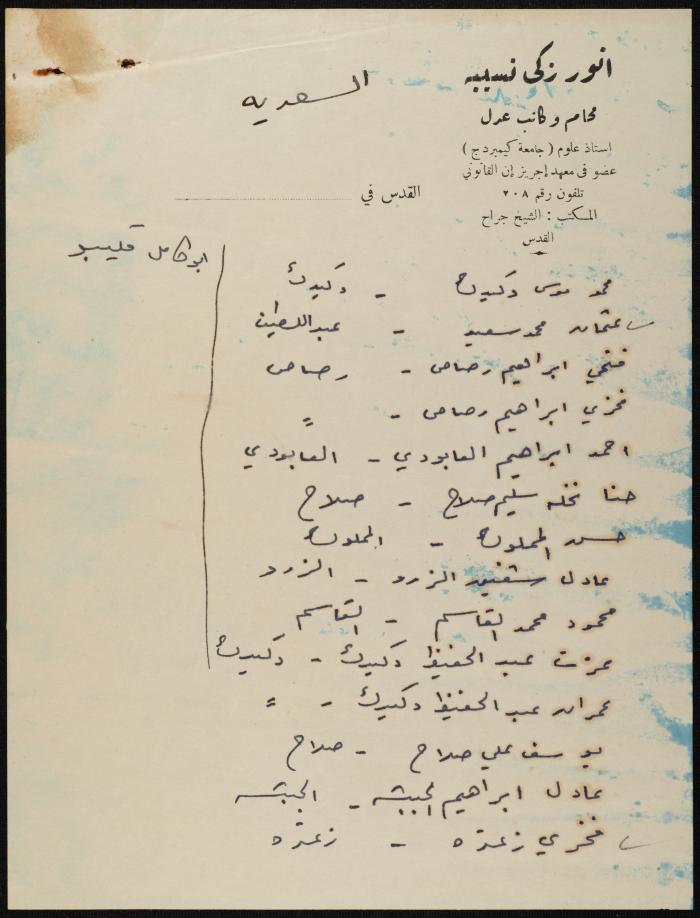 انور زكي نسيبه
محام وكاتب عدل
استاذ علوم ( جامعة كيمبردج )
عضو في معهد إجريز إن القانوني
تلفون رقم ٢٠٨
المكتب : الشيخ جراح
القدس
السعديه
القدس في
ابو كامل قليبو
محمد موسى دكيدك - دكيدك
عثمان محمد سعيد - عبد اللطيف
فتحي ابراهيم رصاص - رصاص
فخري ابراهيم رصاص - =
احمد ابراهيم العابودي - العابودي
حنا نخله سليم صلاح - صلاح
حسن المملوك - المملوك
عادل الزرد - الزرد
محمود محمد القاسم - القاسم
عزت عبد الحفيظ دكيدك - دكيدك
عمران عبد الحفيظ دكيدك - =
يوسف علي صلاح - صلاح
عادل ابراهيم الحبشه - الحبشه
فخري زعتره - زعتره